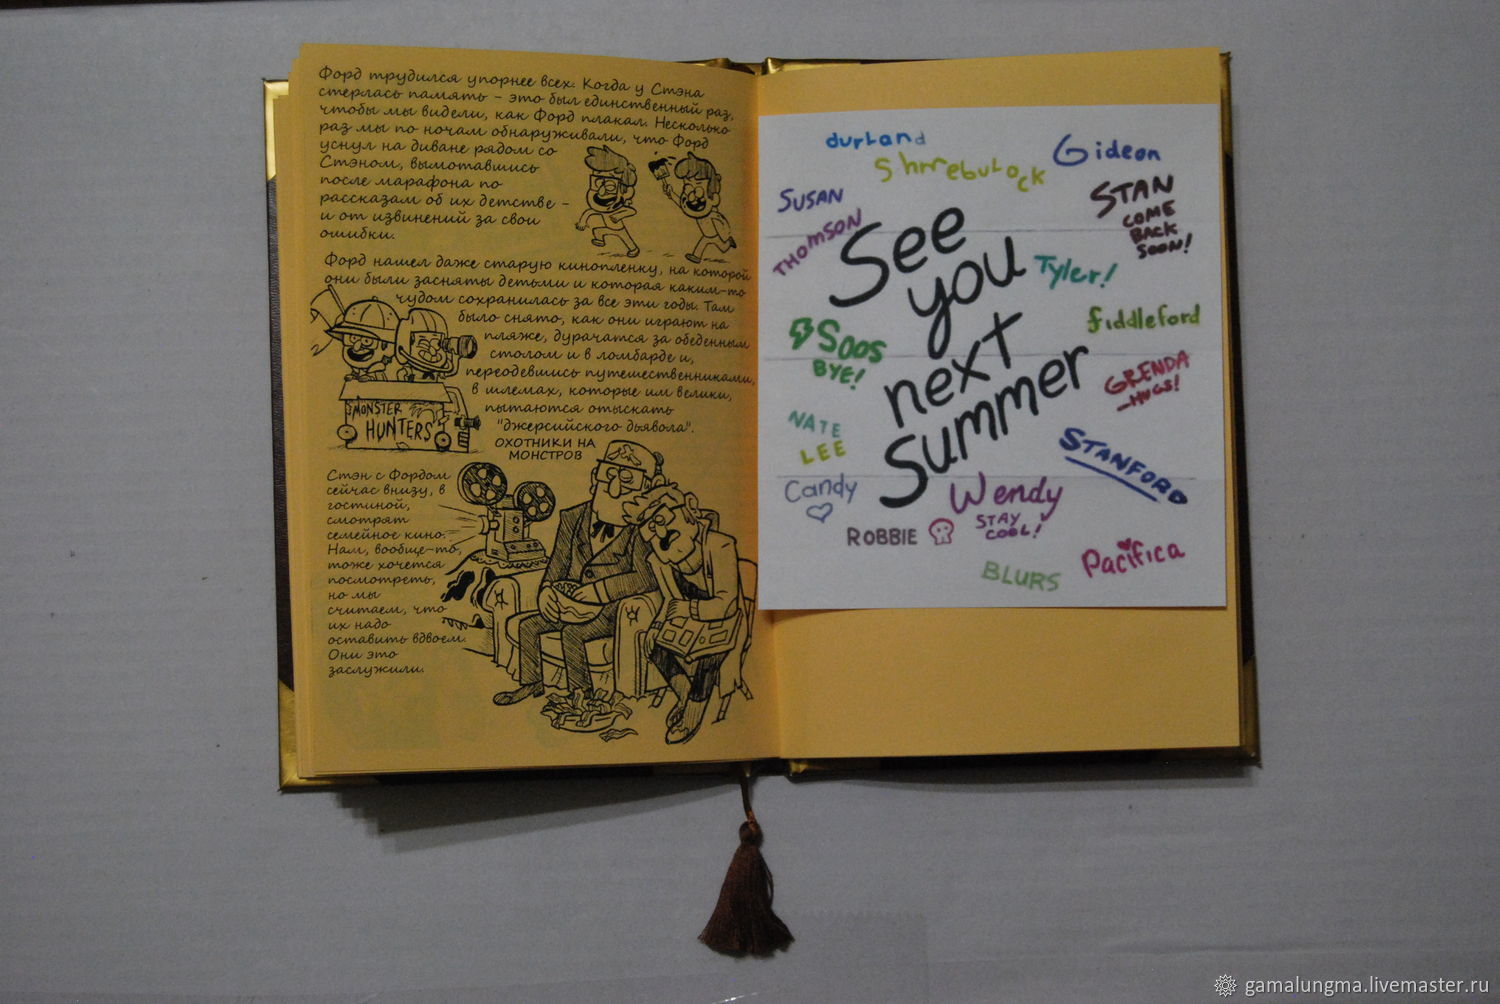 Форд трудился упорнее всех. Когда у Стэна
стерлась память - это был единственный раз,
чтобы мы видели, как Форд плакал. Несколько
раз мы по ночам обнаруживали, что Форд
уснул на диване рядом со
Стэном, вымотавшись
после марафона по
рассказам об их детстве -
и от извинений за свои
ошибки.
Форд нашел даже старую кинопленку, на которой
они были засняты детьми и которая каким-то
чудом сохранилась за все эти годы. Там
было снято, как они играют на
пляже, дурачатся за обеденным
столом и в ломбарде и,
переодевшись путешественниками,
в шлемах, которые им велики,
пытаются отыскать
"джерсийского дьявола".
ОХОТНИКИ НА
МОНСТРОВ
MONSTER
HUNTERS
Стэн с Фордом
сейчас внизу, в
гостиной,
смотрят
семейное кино.
Нам, вообще-то,
тоже хочется
посмотреть,
но мы
считаем, что
их надо
оставить вдвоем.
Они это
заслужили.
durLand
Shmebulock
Gideon
SUSAN
STAN
COME
BACK
SOON!
THOMSON
See
you
next
summer
Tyler!
Soos
BYE!
fiddleford
GRENDA
-HUGS!
NATE
LEE
STANFORD
Candy
Wendy
STAY
COOL!
ROBBIE
BLURS
Pacifica
gamalungma.livemaster.ru